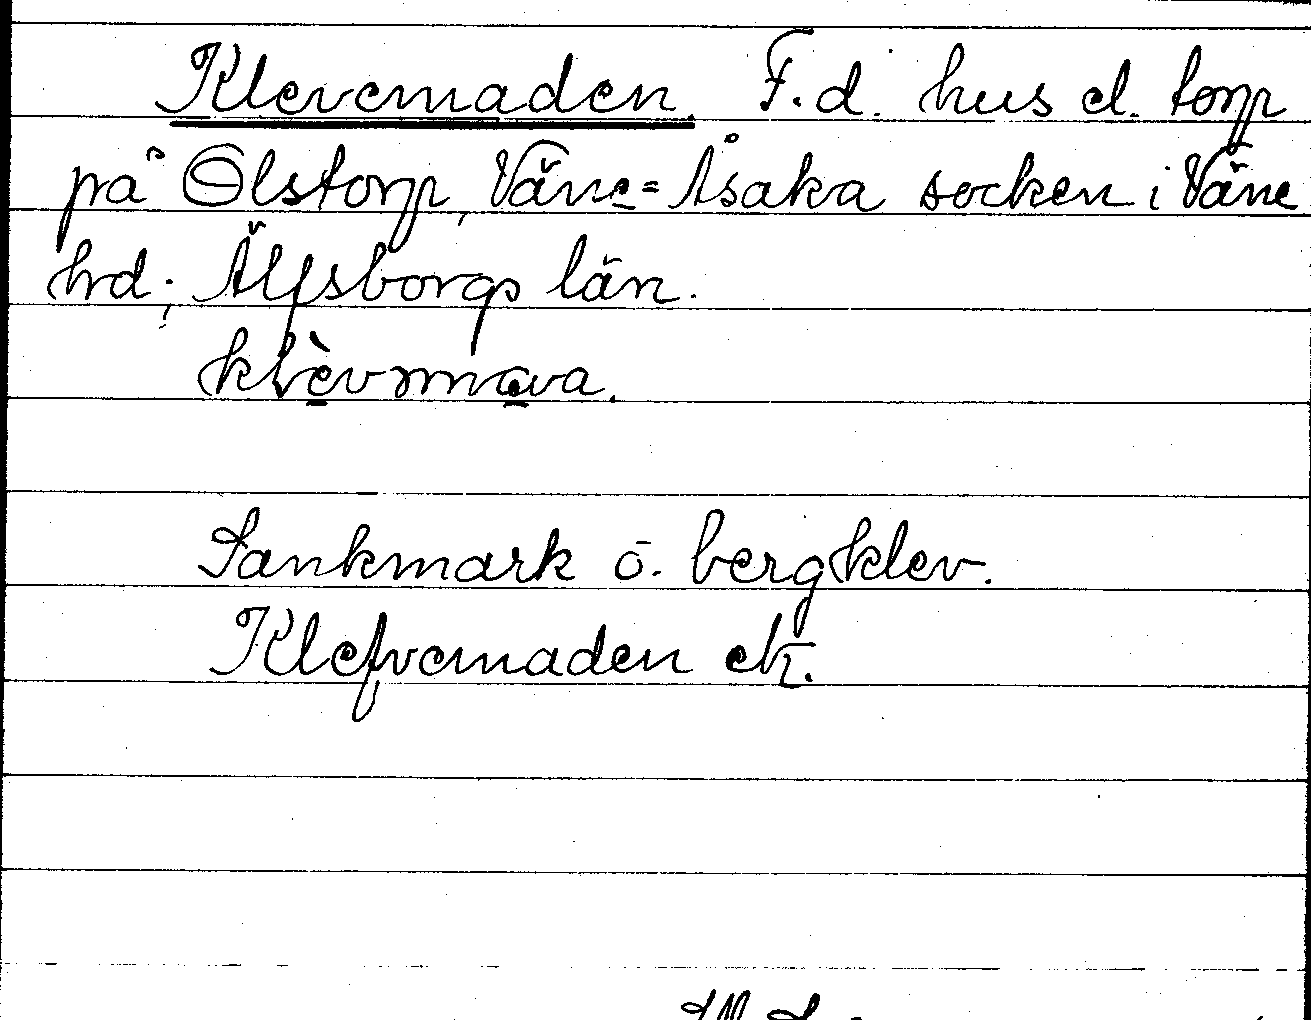 Klevemaden. F.d. hus el. torp
på Olstorp, Väne=Åsaka socken i Väne
hrd; Älfsborgs län.
klèvmava.
Sankmark o. bergklev.
Klefvemaden ek.